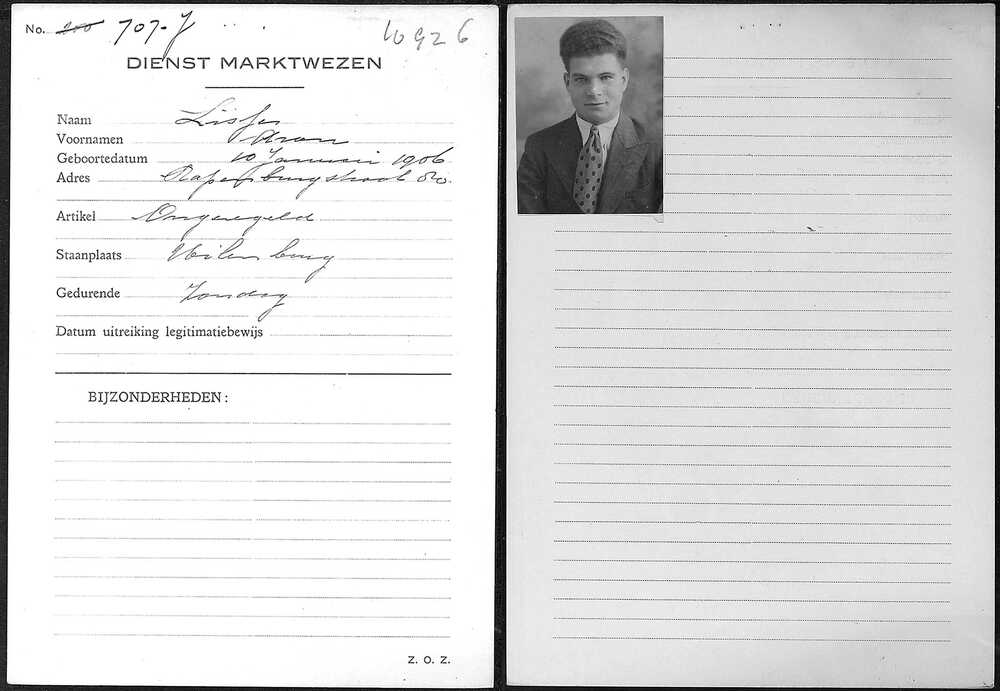 No. 200 707-J
10926
DIENST MARKTWEZEN
Naam Lisser
Voornamen Aron
Geboortedatum 10 Januari 1906
Adres Rapenburgstraat 80.
Artikel Ongeregeld
Staanplaats Uilenburg
Gedurende Zondag
Datum uitreiking legitimatiebewijs
BIJZONDERHEDEN:
Z. O. Z.